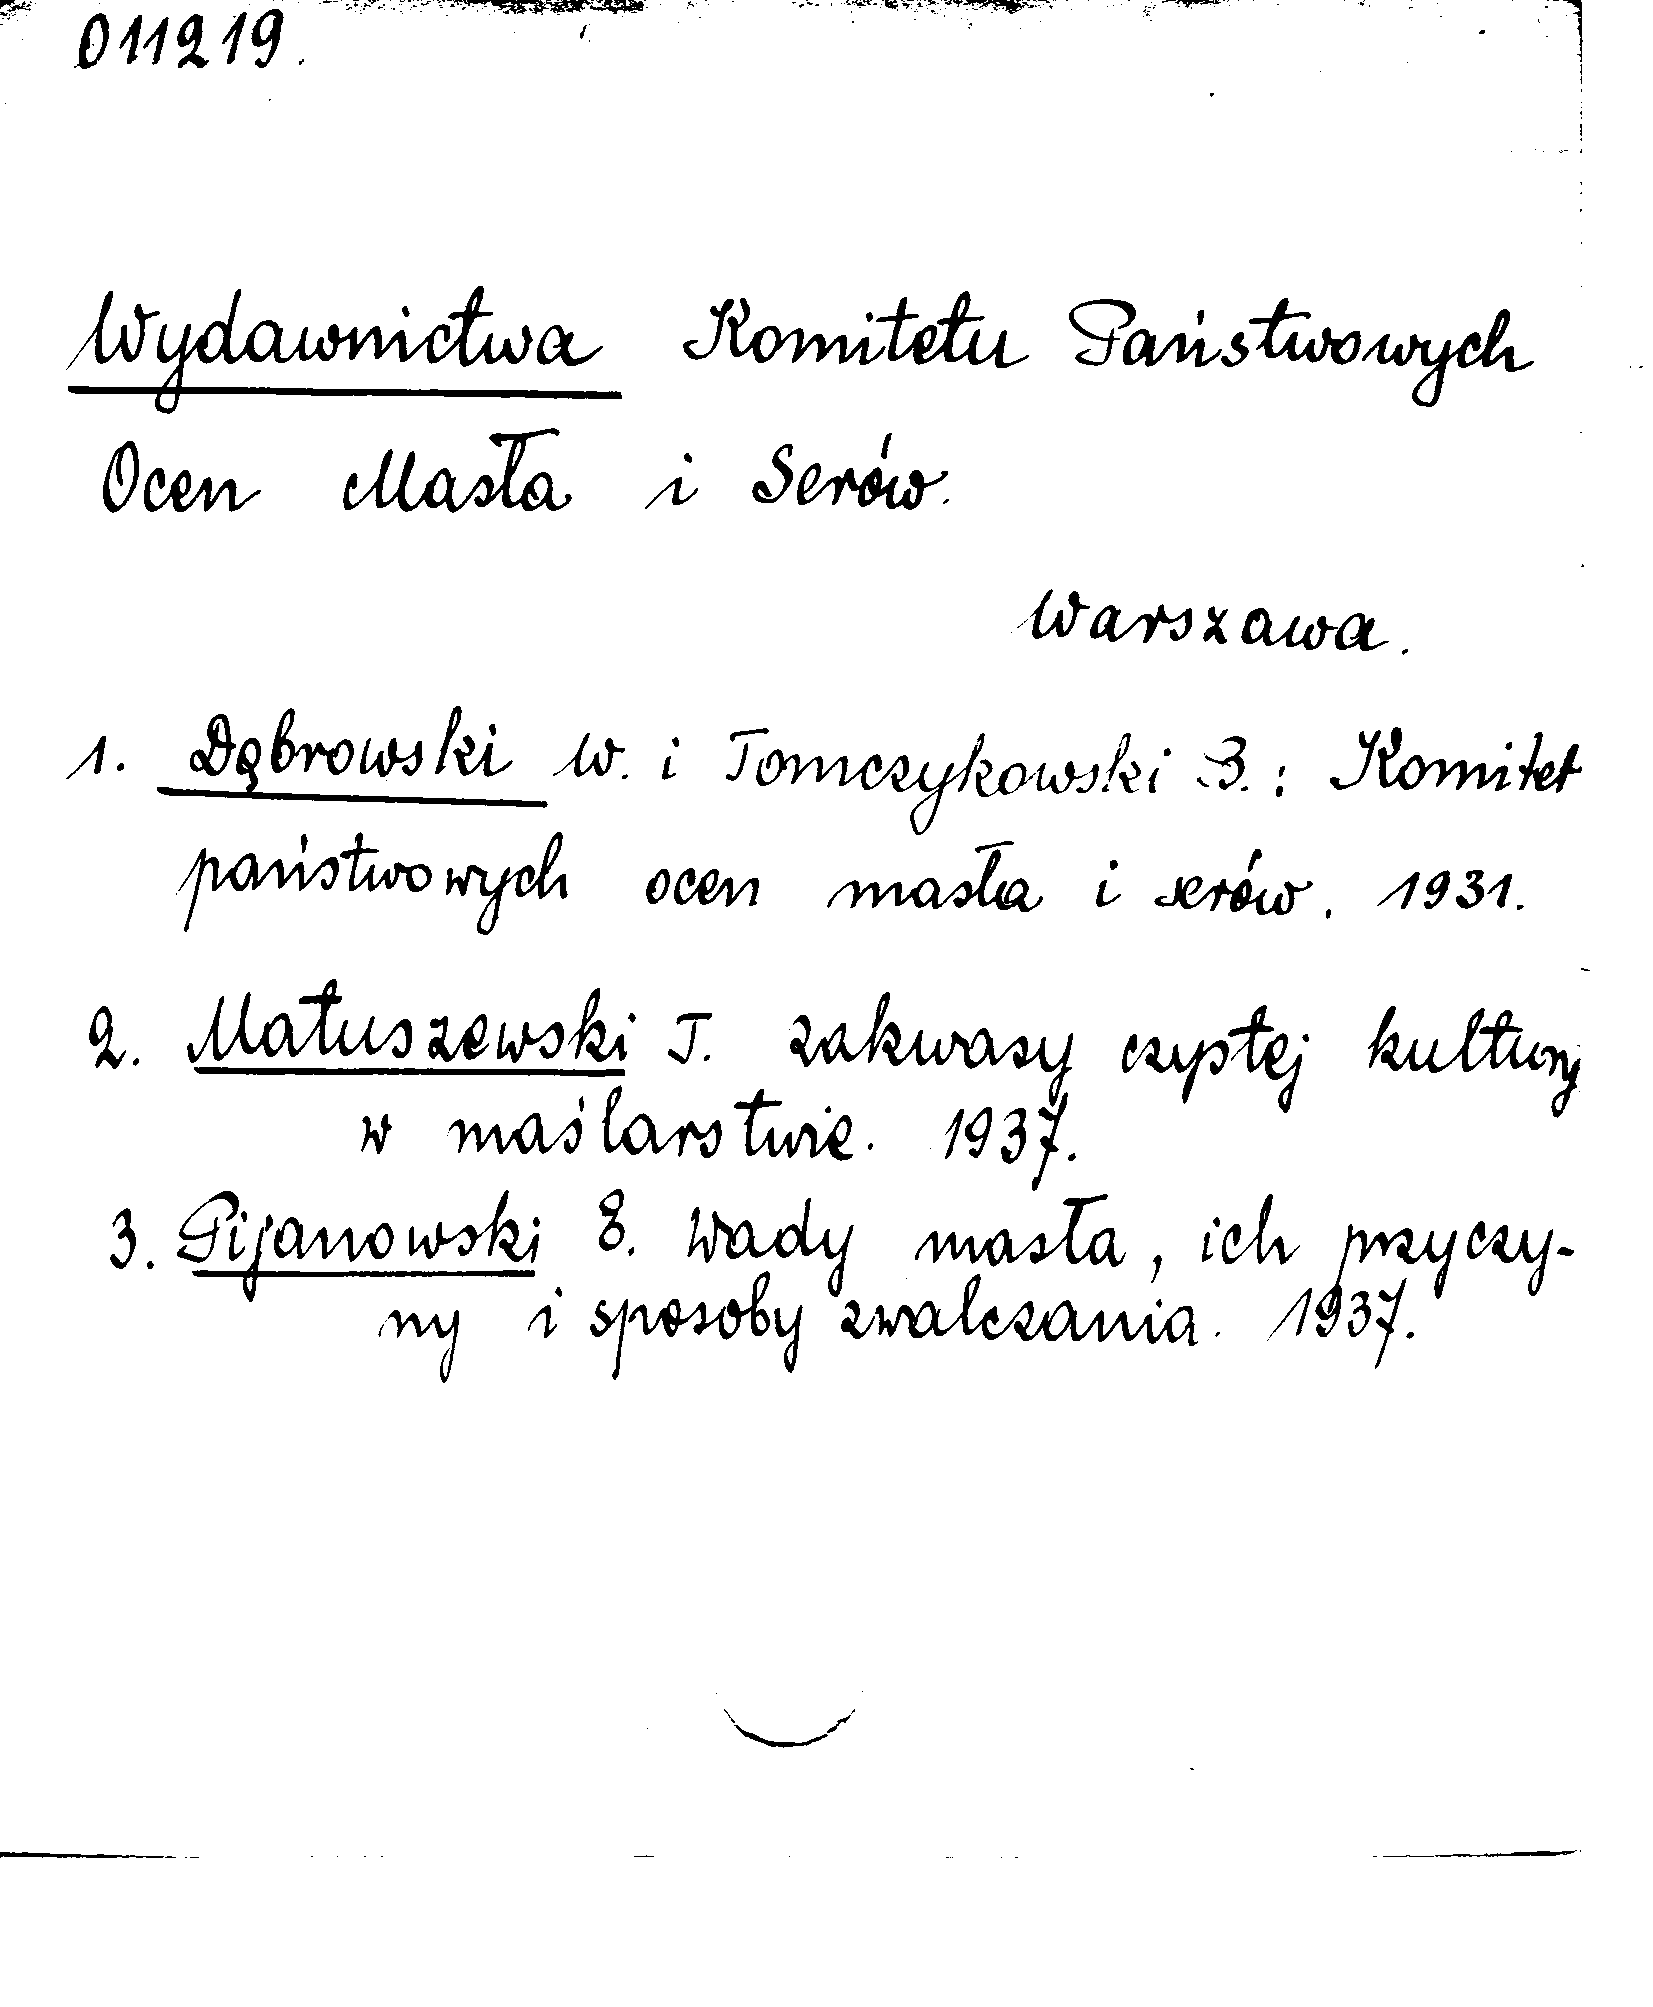 011219.
Wydawnictwa Komitetu Państwowych
Ocen Masła i Serów.
Warszawa.
1. Dąbrowski W. i Tomczykowski B.: Komitet
państwowych ocen masła i serów. 1931.
2. Matuszewski T. Zakwasy czystej kultury
w maślarstwie. 1937.
3. Pijanowski E. Wady masła, ich przyczy-
ny i sposoby zwalczania. 1937.